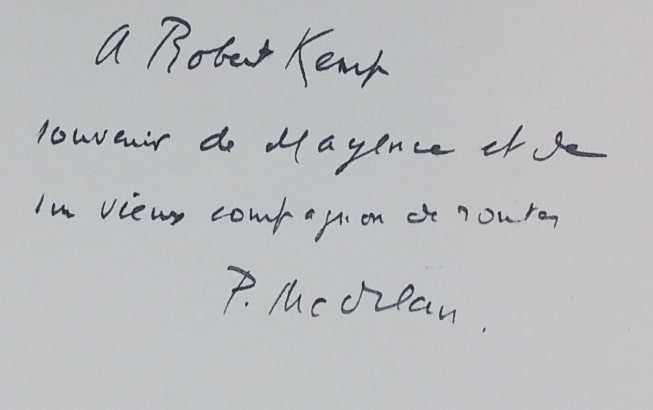 A Robert Kemp
souvenir de Mayence et de
son vieux compagnon de routes
P. Mc Orlan.